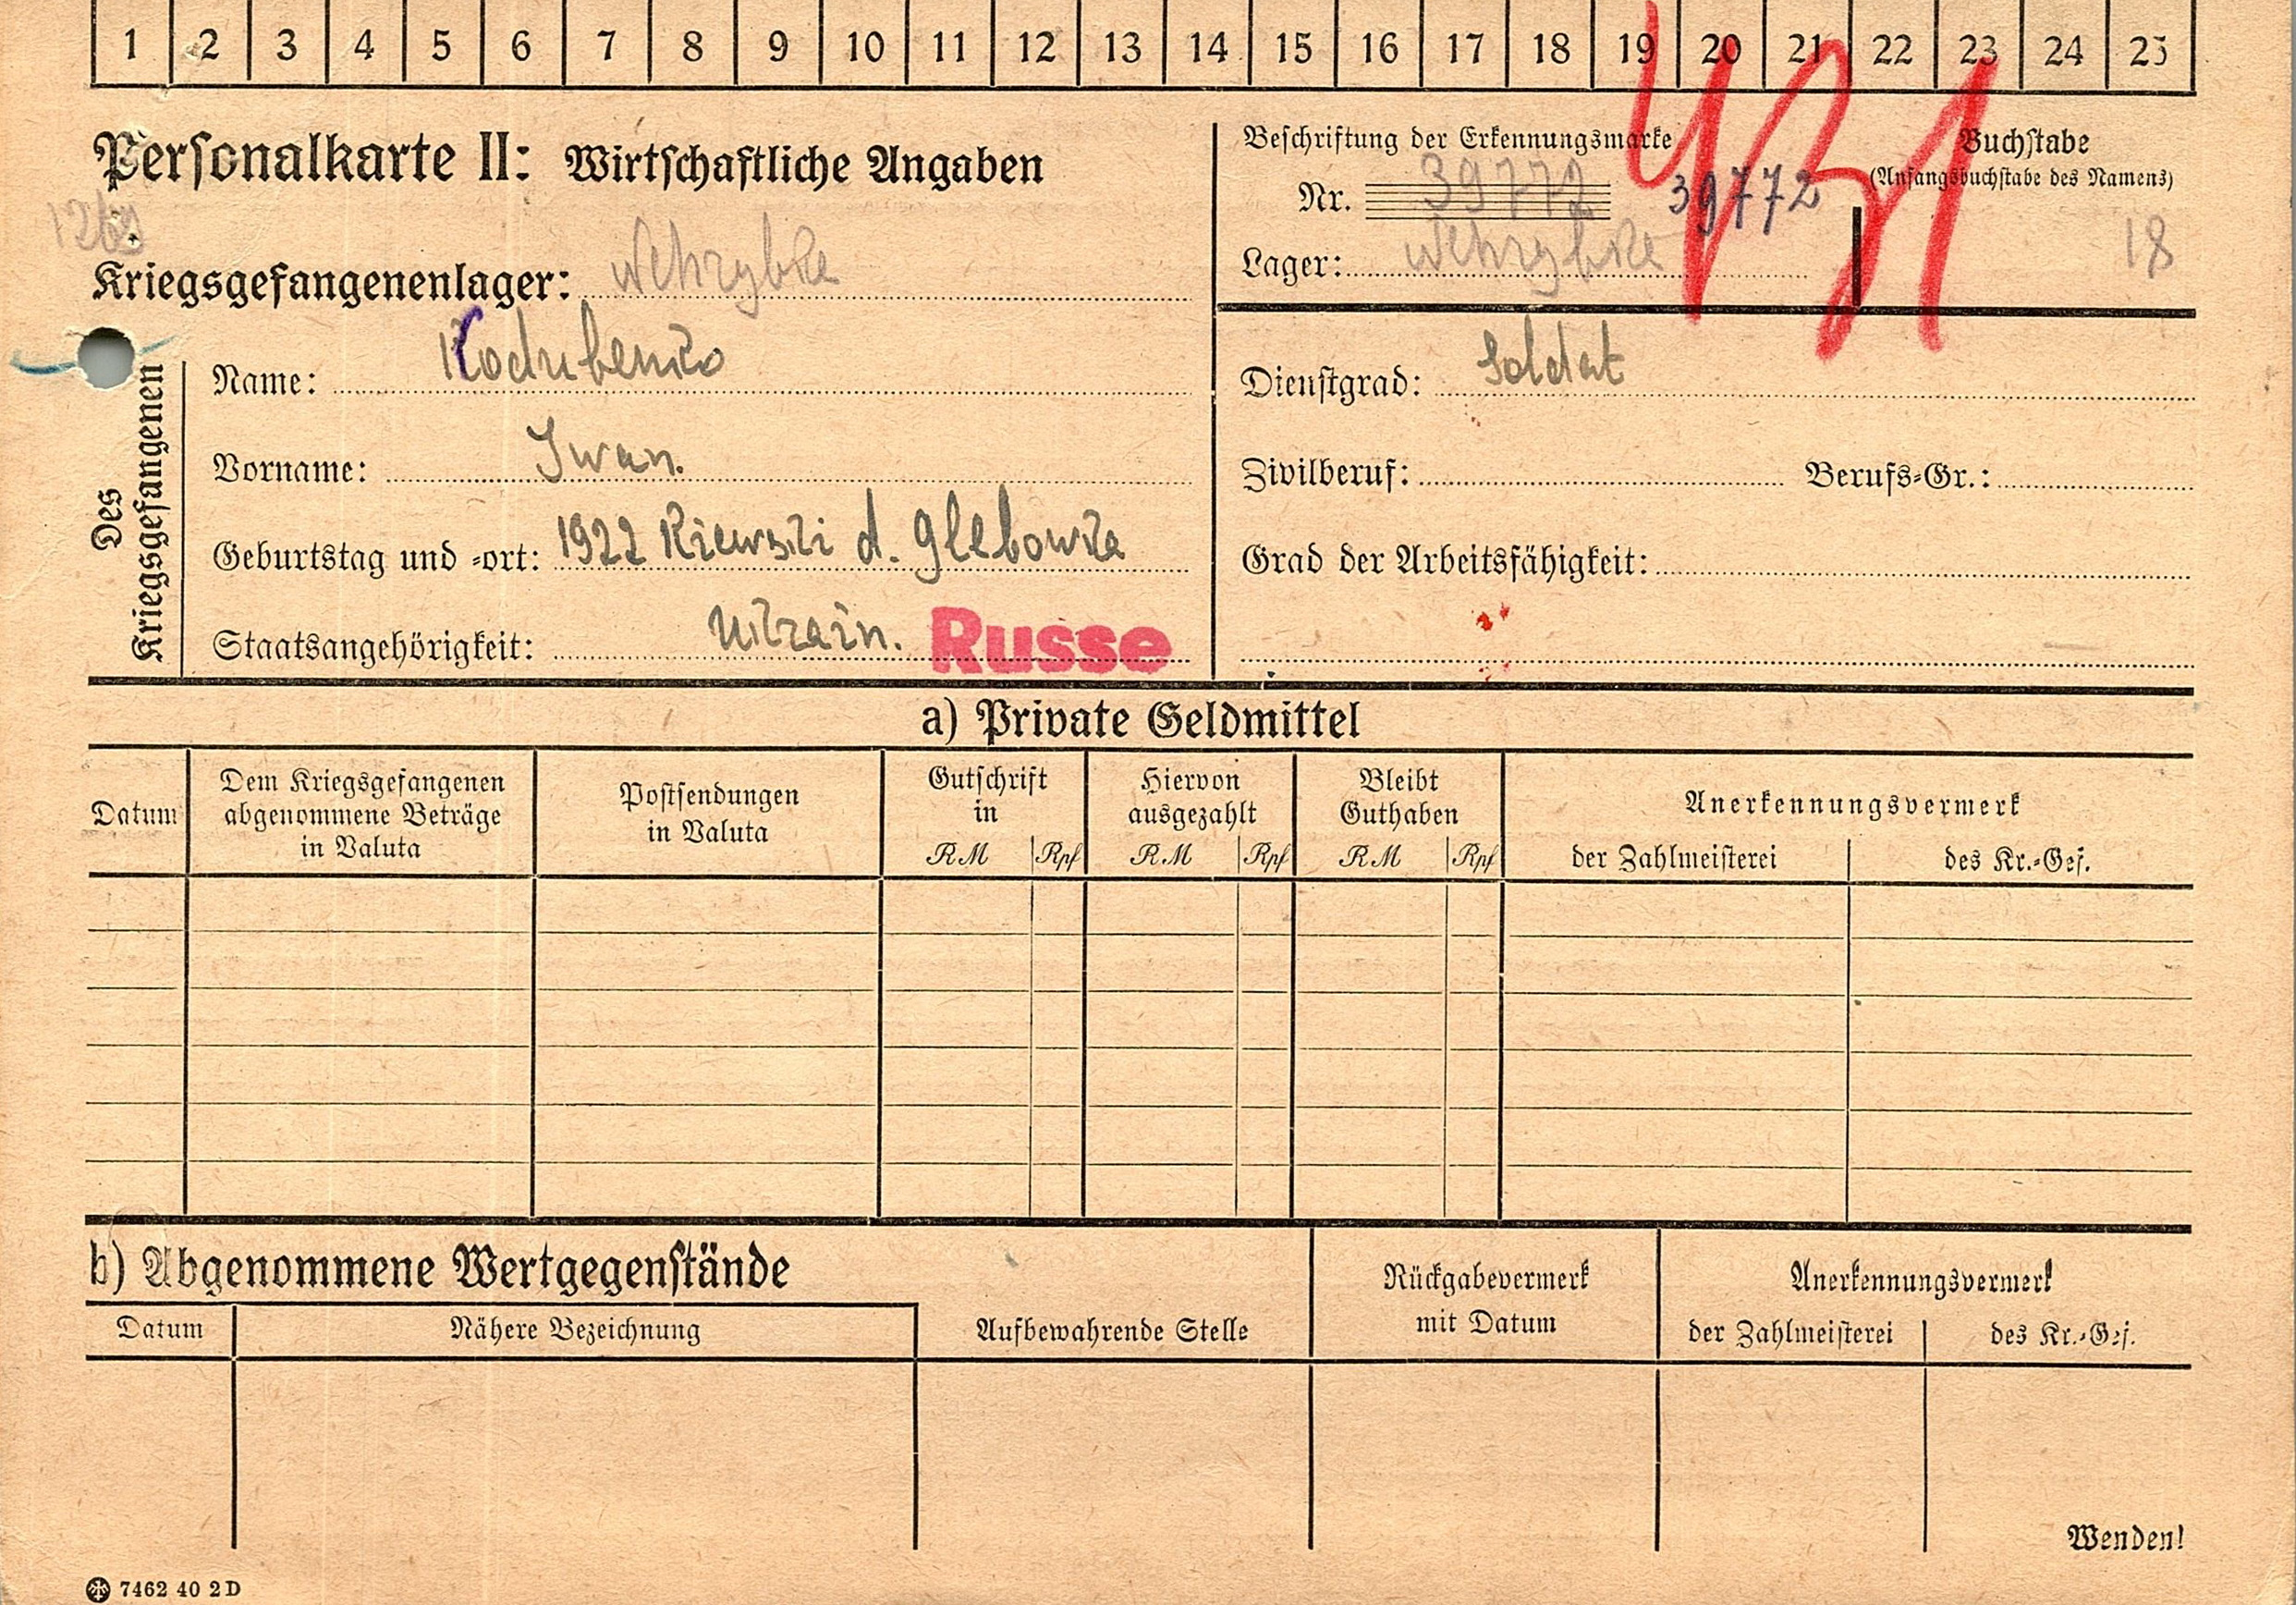 1 2 3 4 5 6 7 8 9 10 11 12 13 14 15 16 17 18 19 20 21 22 23 24 25
Personalkarte II: Wirtschaftliche Angaben
Kriegsgefangenenlager: Wehrybke
Beschriftung der Erkennungsmarke
Nr. 39772 39772
Lager: Wehrybke
Buchstabe
(Anfangsbuchstabe des Namens)
18
Des Kriegsgefangenen
Name: Kodubenko
Vorname: Iwan.
Geburtstag und -ort: 1922 Kiewski d. Glebowka
Staatsangehörigkeit: Ukrain. Russe
Dienstgrad: Soldat
Zivilberuf: Berufs-Gr.:
Grad der Arbeitsfähigkeit:
a) Private Geldmittel
Datum
Dem Kriegsgefangenen
abgenommene Beträge
in Valuta
Postsendungen
in Valuta
Gutschrift
in
RM Rpf
Hiervon
ausgezahlt
RM Rpf
Bleibt
Guthaben
RM Rpf
Anerkennungsvermerk
der Zahlmeisterei des Kr.-Gef.
b) Abgenommene Wertgegenstände
Datum Nähere Bezeichnung
Aufbewahrende Stelle
Rückgabevermerk
mit Datum
Anerkennungsvermerk
der Zahlmeisterei des Kr.-Gef.
Wenden!
7462 40 2D